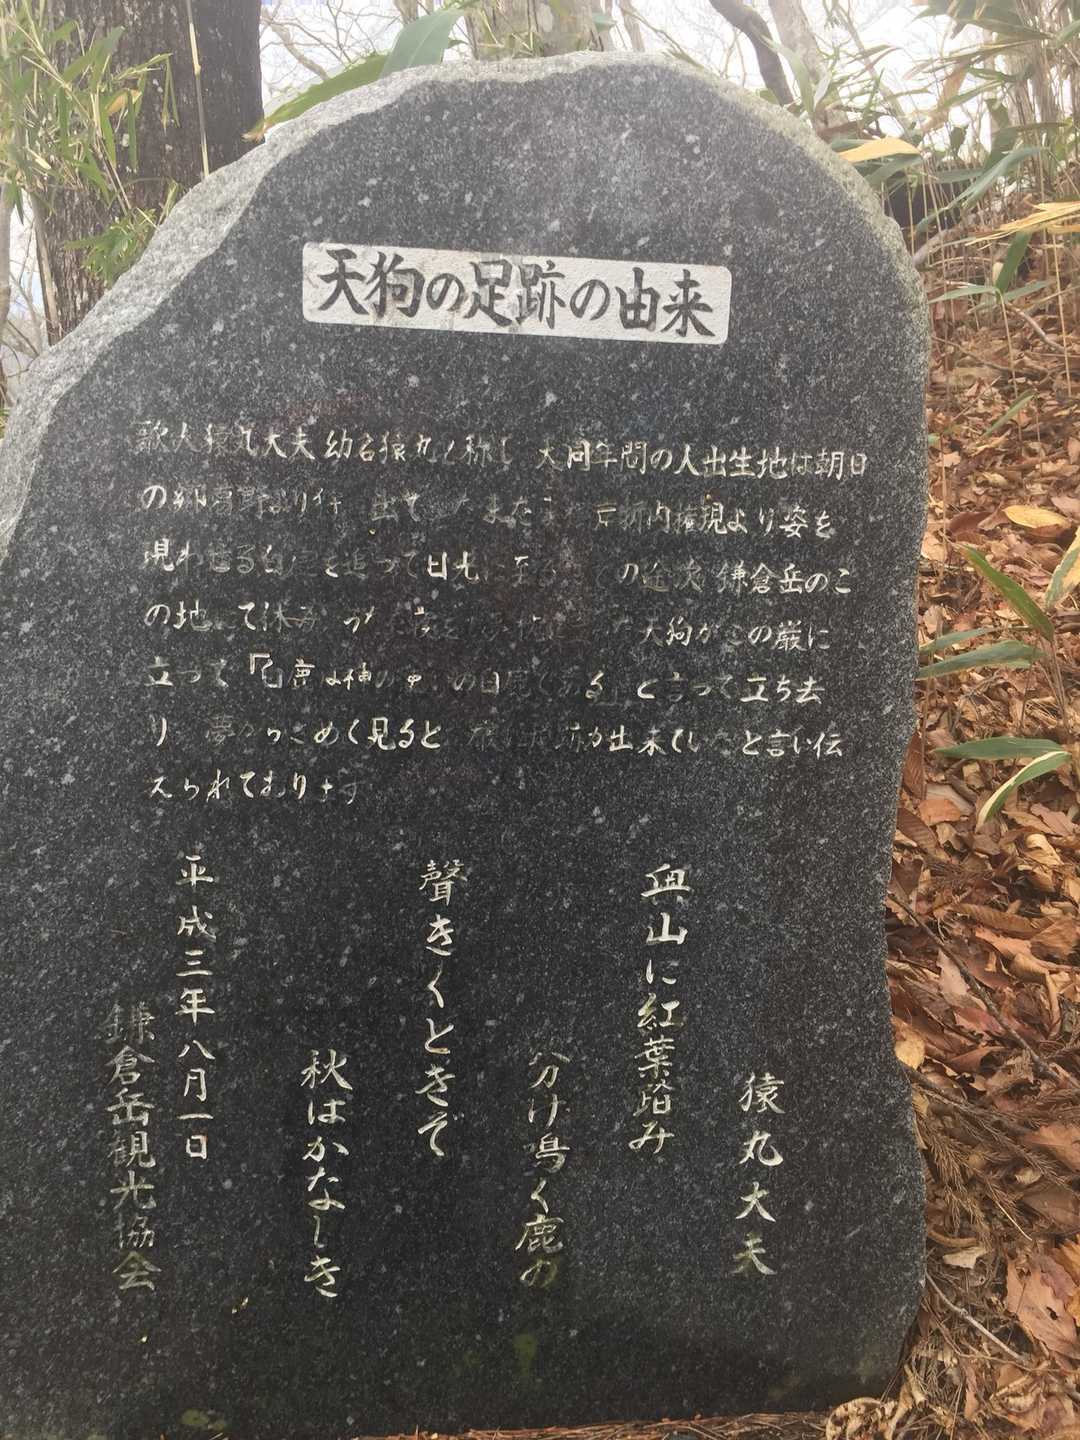 天狗の足跡の由来
歌人猿丸大夫幼名猿丸と称し 大同年間の人出生地は朝日
の 高野より 出 たまたま 内権現より姿を
現わせる白 を追って日光に至る の途次 鎌倉岳のこ
の地にて休み 天狗がこの巌に
立って『白鹿は神の の白鹿である』と言って立ち去
り 夢からさめて見ると 足跡が出来ていたと言い伝
えられております
猿丸大夫
奥山に紅葉踏み
分け鳴く鹿の
聲きくときぞ
秋はかなしき
平成三年八月一日
鎌倉岳観光協会